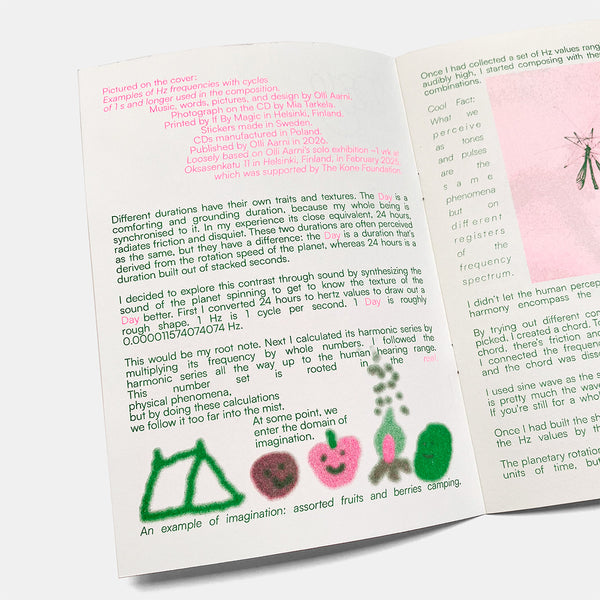 Pictured on the cover:
Examples of Hz frequencies with cycles
of 1 s and longer used in the composition.
Music, words, pictures, and design by Olli Aarni.
Photograph on the CD by Mia Tarkela.
Printed by If By Magic in Helsinki, Finland.
Stickers made in Sweden.
CDs manufactured in Poland.
Published by Olli Aarni in 2026.
Loosely based on Olli Aarni's solo exhibition ~1 vrk at
Oksasenkatu 11 in Helsinki, Finland, in February 2025,
which was supported by The Kone Foundation.
Different durations have their own traits and textures. The Day is a
comforting and grounding duration, because my whole being is
synchronised to it. In my experience its close equivalent, 24 hours,
radiates friction and disquiet. These two durations are often perceived
as the same, but they have a difference: the Day is a duration that's
derived from the rotation speed of the planet, whereas 24 hours is a
duration built out of stacked seconds.
I decided to explore this contrast through sound by synthesizing the
sound of the planet spinning to get to know the texture of the
Day better. First I converted 24 hours to hertz values to draw out a
rough shape. 1 Hz is 1 cycle per second. 1 Day is roughly
0.000011574074074 Hz.
This would be my root note. Next I calculated its harmonic series by
multiplying its frequency by whole numbers. I followed the
harmonic series all the way up to the human hearing range.
This number set is rooted in the real,
physical phenomena,
but by doing these calculations
we follow it too far into the mist.
At some point, we
enter the domain of
imagination.
An example of imagination: assorted fruits and berries camping.
Once I had collected a set of Hz values rang
audibly high, I started composing with the
combinations.
Cool Fact:
What we
perceive
as tones
and pulses
are the
same
phenomena
but on
different
registers
of the
frequency
spectrum.
I didn't let the human percep
harmony encompass the
By trying out different con
picked. I created a chord. To
chord, there's friction and
I connected the frequenc
and the chord was disse
I used sine wave as the s
is pretty much the wave
If you're still for a whol
Once I had built the sh
the Hz values by the
The planetary rotatio
units of time, but